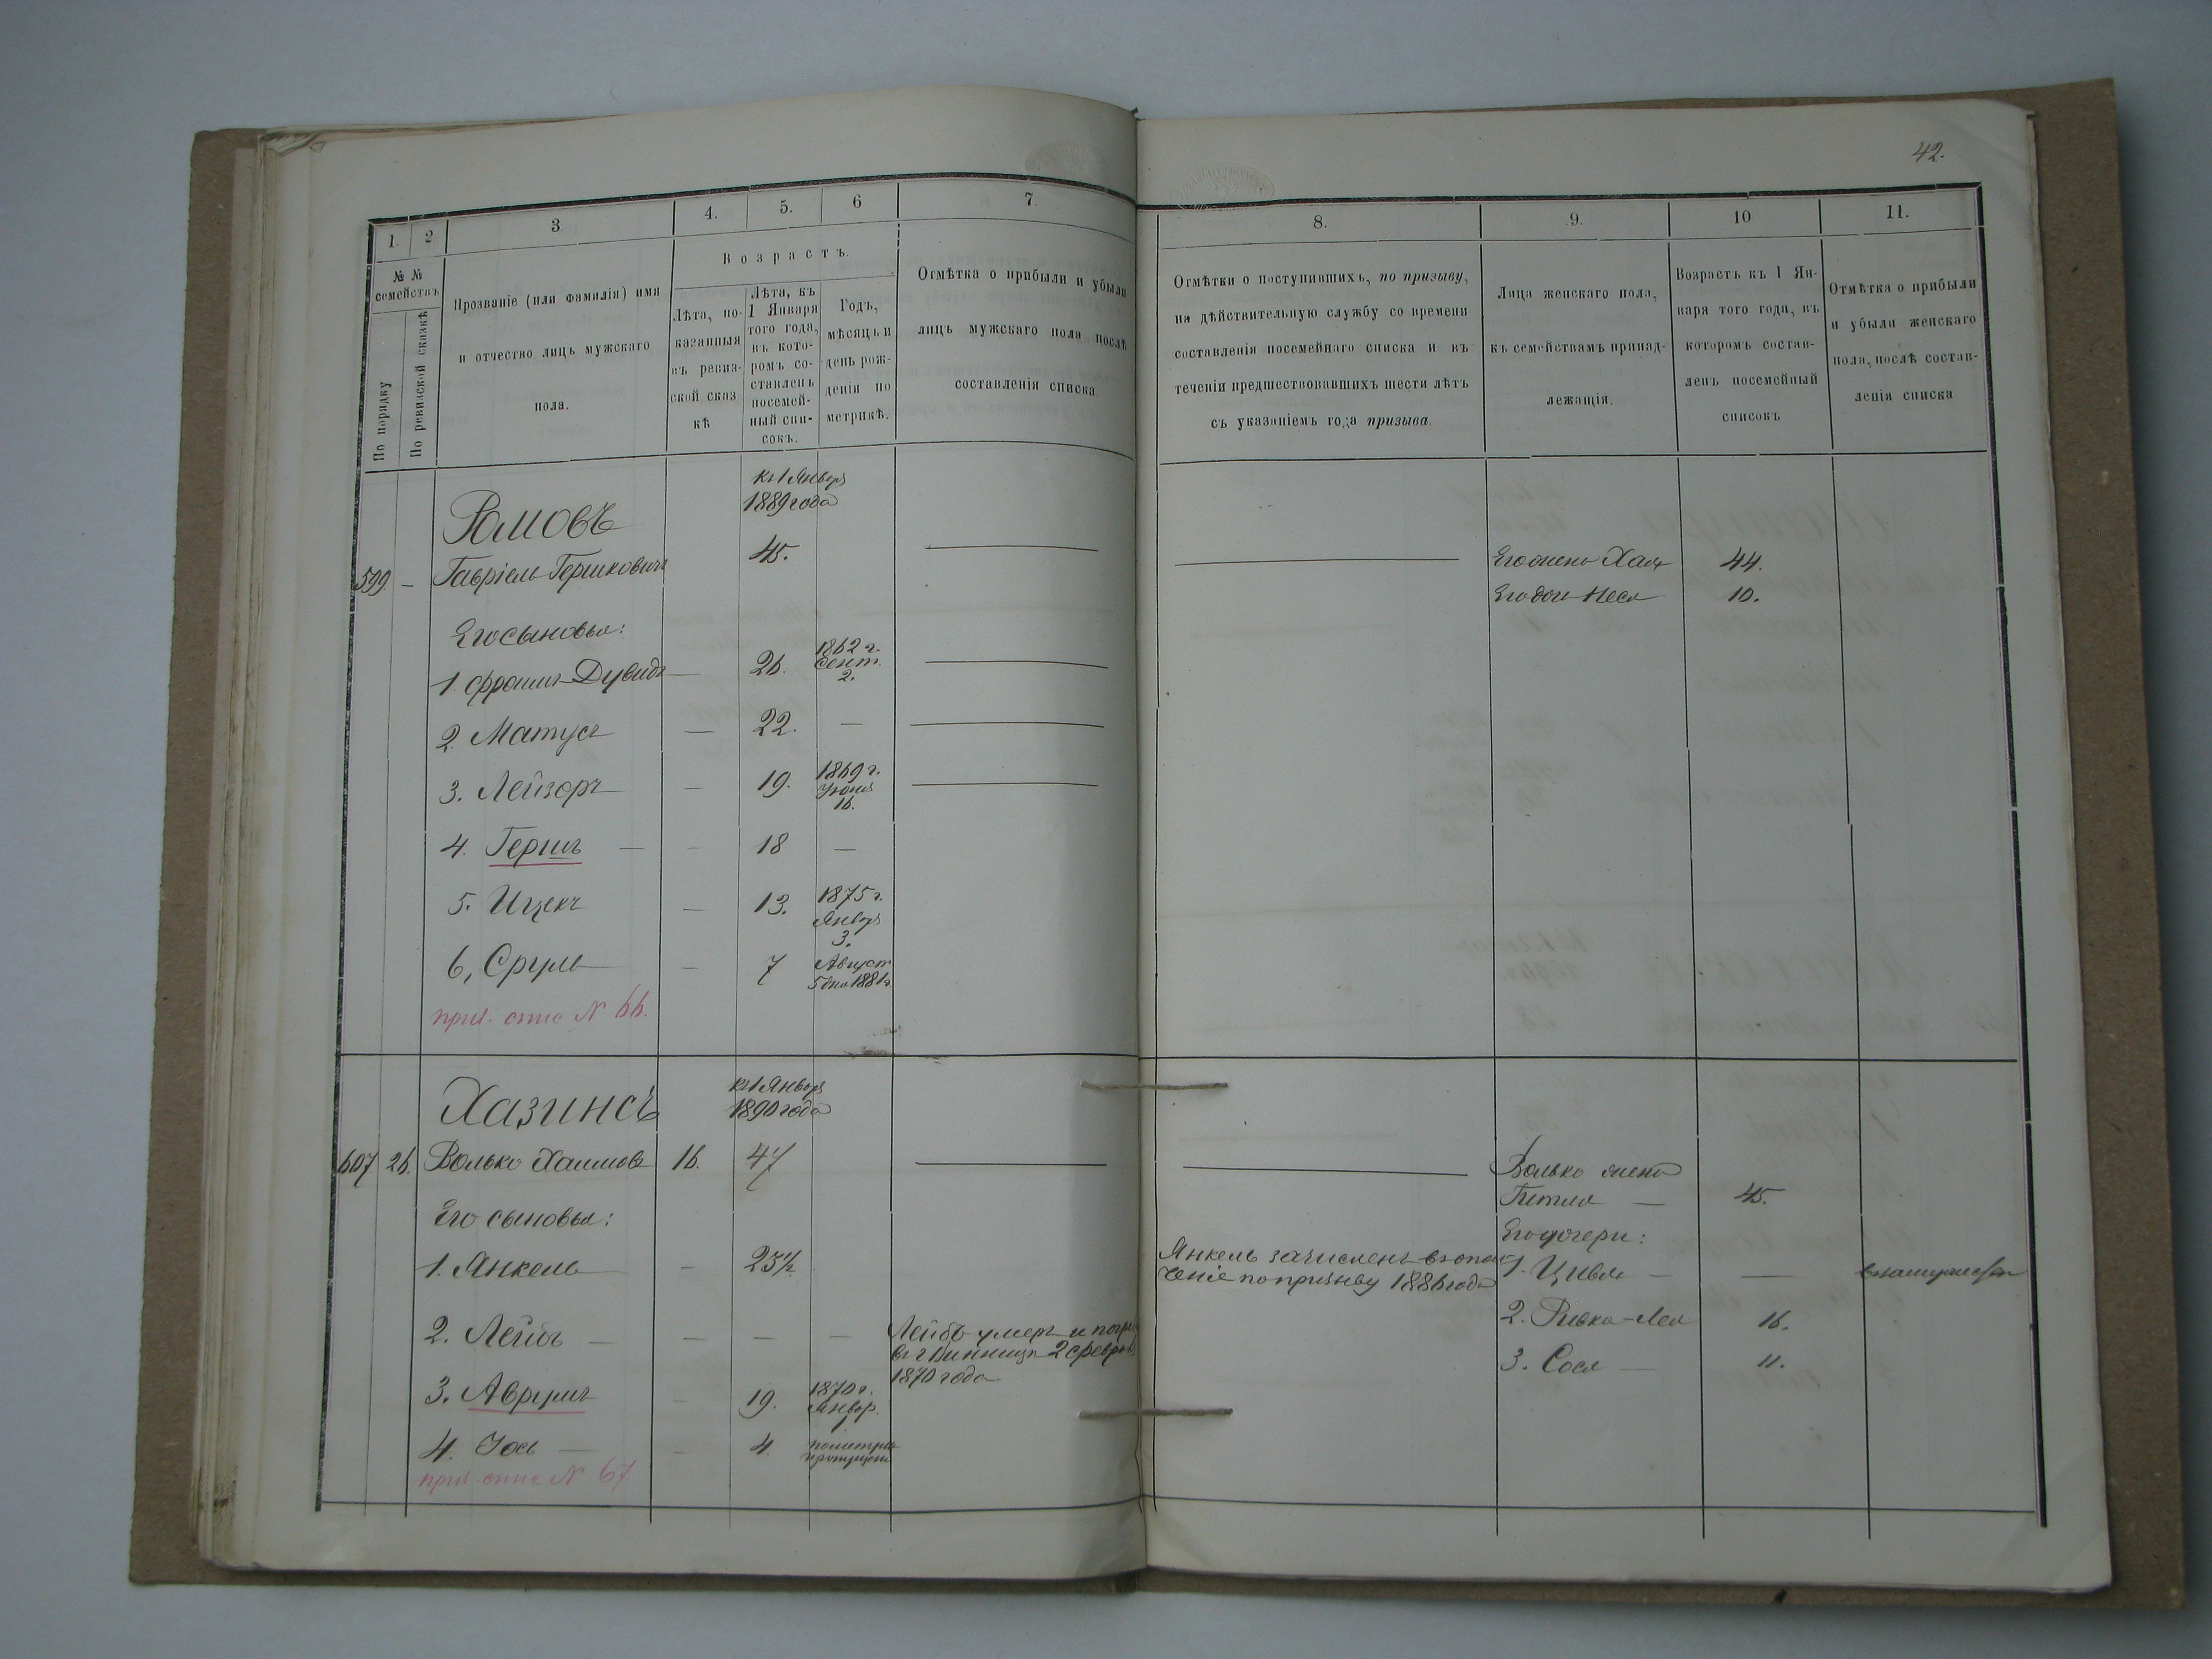 42.
1. 2 3 4. 5. 6 7.
№ №
семействъ
По порядку
По ревизской сказкѣ
Прозваніе (или фамилія) имя
и отчество лицъ мужскаго
пола.
Возрастъ.
Лѣта, по-
казанныя
въ ревиз-
ской сказ
кѣ
Лѣта, къ
1 Января
того года,
въ кото-
ромъ со-
ставленъ
посемей-
ный спи-
сокъ.
Годъ,
мѣсяцъ и
день рож-
денія по
метрикѣ.
Отмѣтка о прибыли и убыли
лицъ мужскаго пола послѣ
составленія списка
8. 9. 10 11.
Отмѣтки о поступившихъ, по призыву,
на дѣйствительную службу со времени
составленія посемейнаго списка и въ
теченіи предшествовавшихъ шести лѣтъ
съ указаніемъ года призыва.
Лица женскаго пола,
къ семействамъ принад-
лежащія.
Возрастъ къ 1 Ян-
варя того года, въ
которомъ состав-
ленъ посемейный
списокъ
Отмѣтка о прибыли
и убыли женскаго
пола, послѣ состав-
ленія списка
къ 1 Январ
1889 года
Ромовъ
599 — Гавріель Гершковичъ 45. — — Его жена Хая 44.
Его дочь Неся 10.
Его сыновья:
1. Фроимъ-Дувидъ — 26. 1862 г. Сент. 2. —
2. Матусъ — 22. — —
3. Лейзоръ — 19. 1869 г. Іюня 16. —
4. Гершъ — — 18 —
5. Ицекъ — 13. 1875 г. Январ 3.
6, Сруль — 7 Август 5 дня 1881 г.
№ 66.
къ 1 Январ
1890 года
Хазинсъ
607 26. Волько Хаимовъ 16. 47 — — Волько жена
— 45.
Его сыновья: Его дочери:
1. Янкель — 23½ Янкель зачисленъ въ опол
ченіе по призыву 1886 года 1. Цивья — — в замужеств
2. Лейбъ — — — — Лейбъ умеръ и погре
въ г Винницѣ 2 феврал
1870 года 2. Ривка-Лея 16.
3. Сося — 11.
3. Аврумъ — 19. 1870 г. Январ. 1.
4. Іось — — 4. по метрик пропущен
№ 67